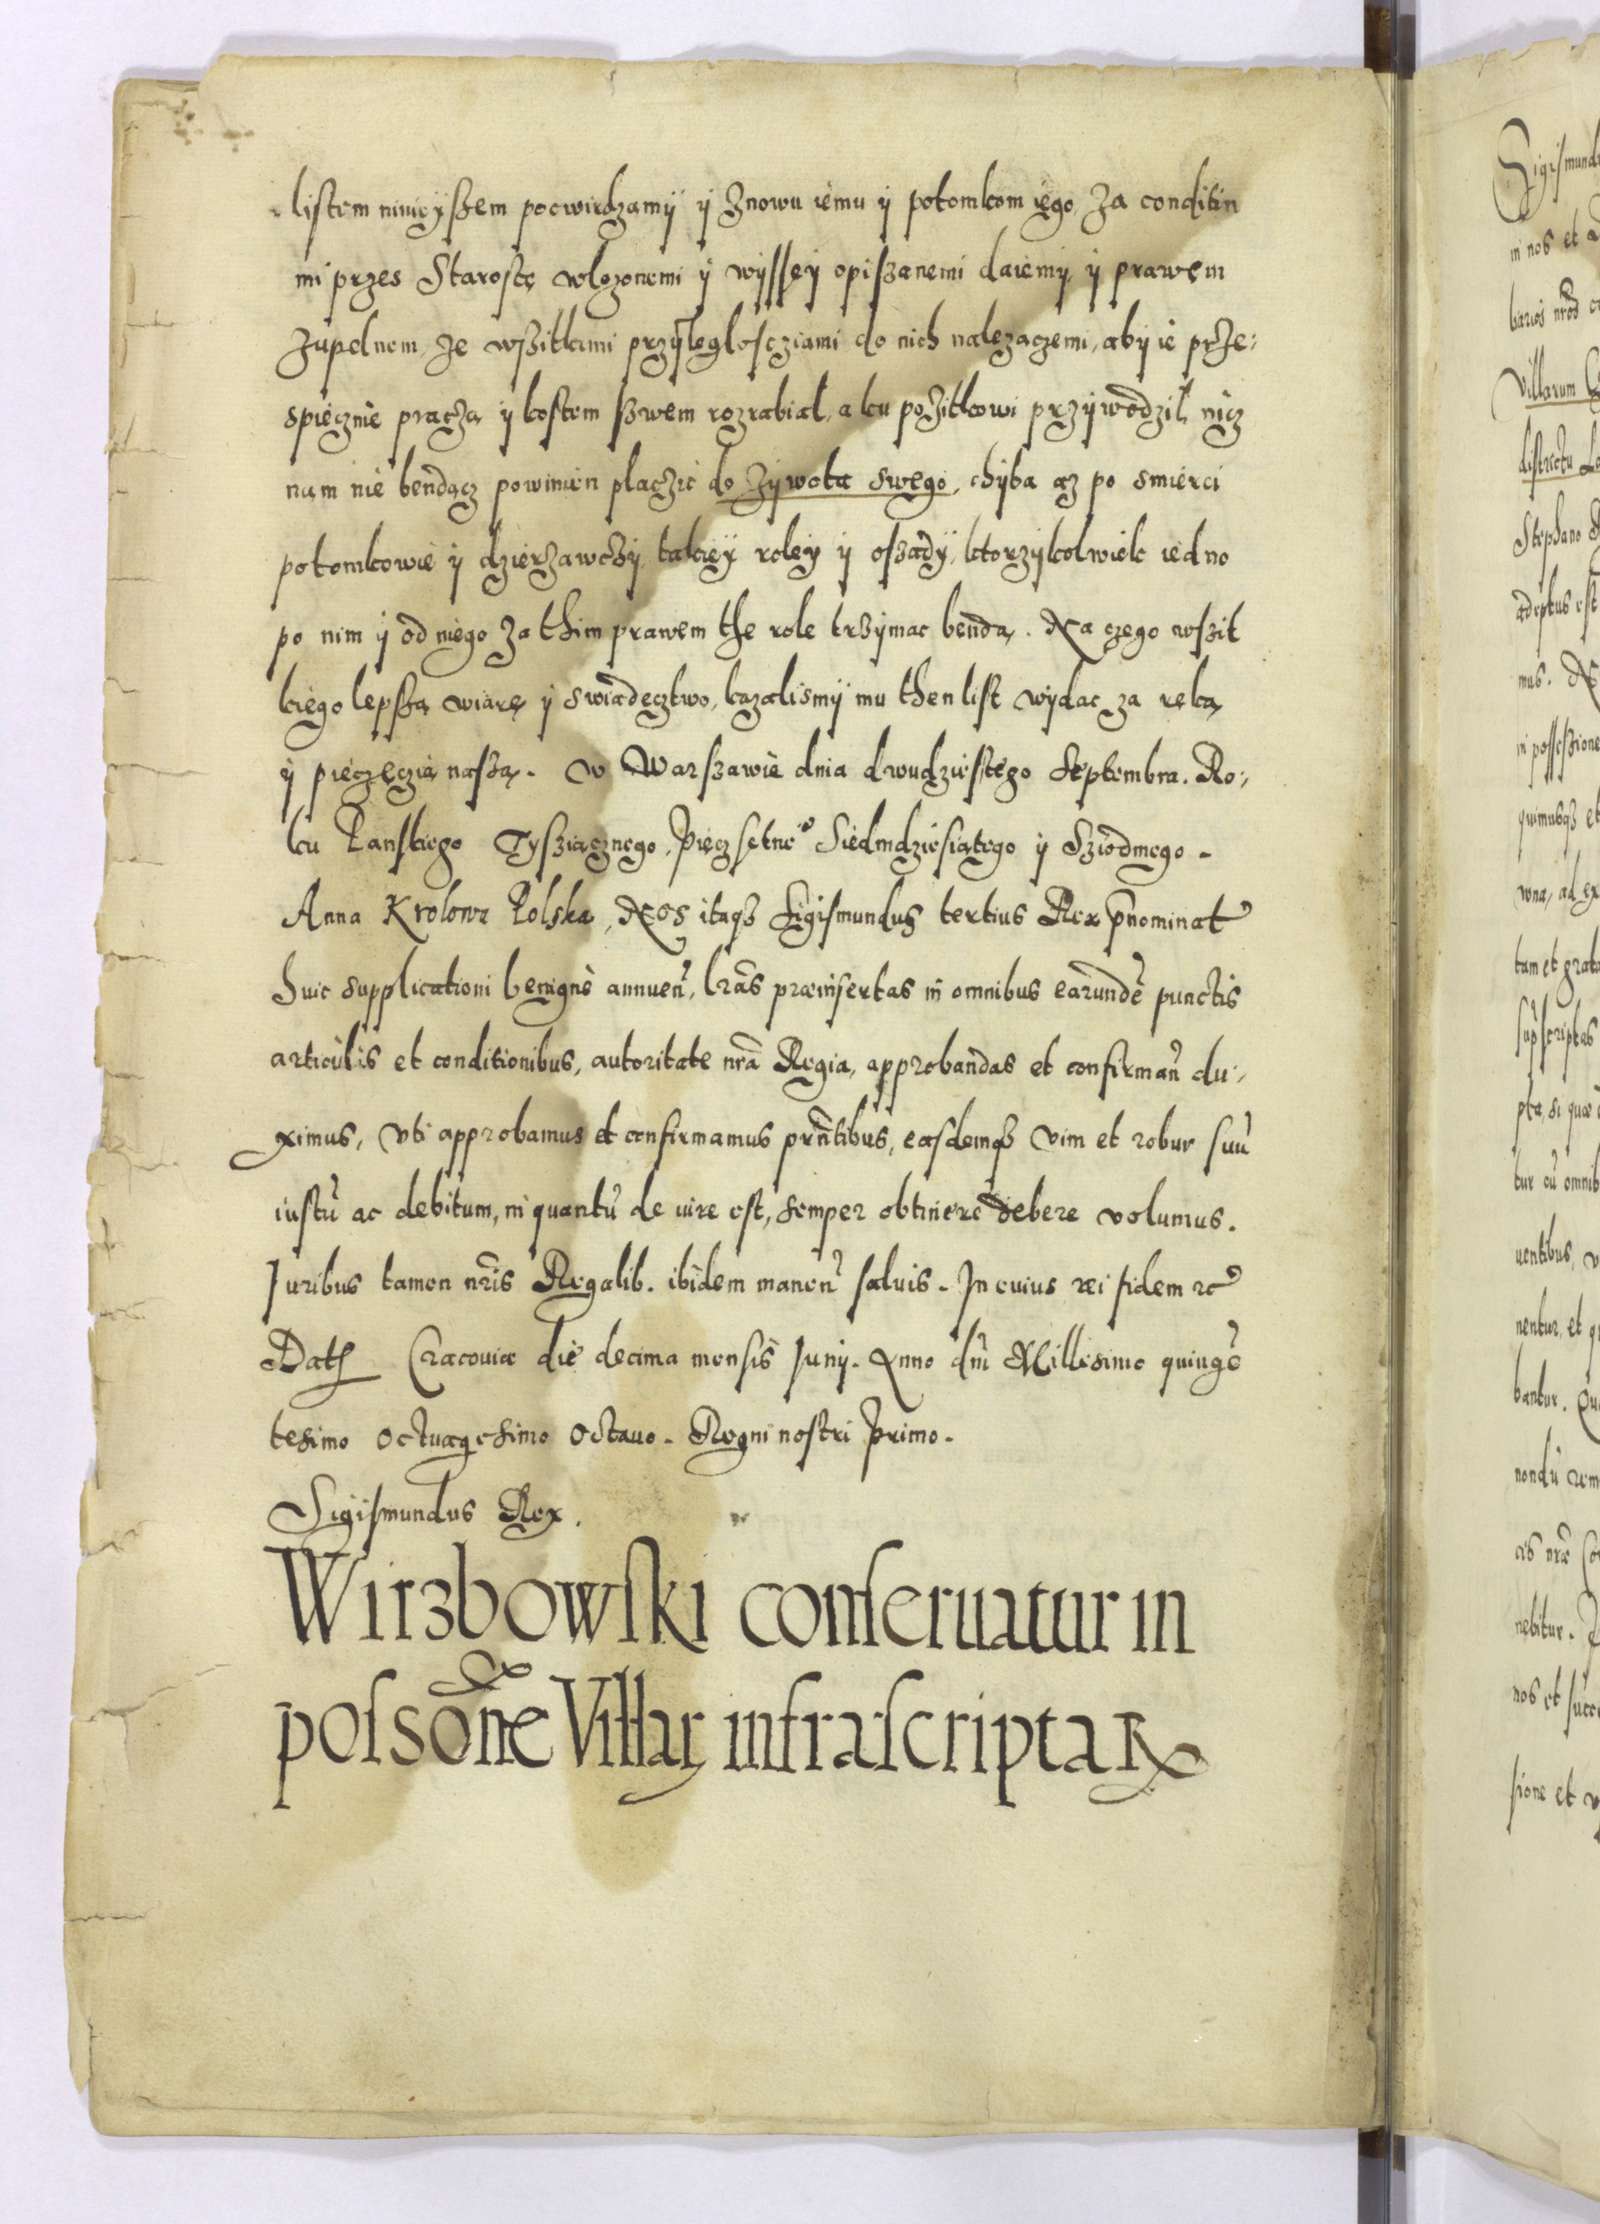 listem ninieyszem poczwirdzamÿ ÿ znowu iemu ÿ potomkom iego, za conditin
mi przes Starostę wlozonemi ÿ wyssey opiszanemi daiemy ÿ prawem
zupelnem, ze wszitkimi przÿleglosçziami do nich nalezaczemi, abÿ ie prze:
spiecznie pracżą ÿ kostem szwem rozrabial, a ku pożitkowi przÿwodzil, nicz
nam nie bendącz powinien placzic do żywota swego, chyba az po smierci
potomkowie ÿ dzierzawczÿ takieÿ roleÿ ÿ oszadÿ, ktorzykolwiek iedno
po nim ÿ od niego za thim prawem the role trzymac bendą. Na czego wszit
kiego lepszą wiarę ÿ swiadecztwo, kazalismÿ mu then list wydac, za ręką
ÿ pieczęczią naszą. W Warszawie dnia dwudziestego Septembra. Ro:
ku Panskiego Tysziącznego, Pięczsetne° Siedmdziesiątego ÿ Sziodmego.
Anna Krolowa Polska, Nos itaqȝ Sigismundus tertius Rex p̃nominat
huic supplicationi benignè annueñ, l̃ras præinsertas in omnibus earundẽ punctis
articulis et conditionibus, autoritate nr̃a Regia, approbandas et confirmañ du:
ximus, vti approbamus et confirmamus prñtibus, easdemqȝ vim et robur suũ
iustũ ac debitum, in quantũ de iure est, semper obtinere debere volumus.
Juribus tamen nr̃is Regalib. ibidem maneñ saluis. In cuius rei fidem ꝛc
Datꝭ Cracouiæ die decima mensis Junij. Anno dñi Millesimo quingẽ
tesimo Octuagesimo Octauo. Regni nostri Primo.
Sigismundus Rex.
Wirzbowski conseruatur in
possõne Villaꝝ infrascriptaꝝ
Sigismund
in nos et a
villarum
districtu Le
Stephano
adeptus est
mus. N
in possessione
quimusqȝ et
wna, ad ex
tam et grata
sup̃scriptas
pta, si quæ
tur cũ omnib
nentur, et q
bantur. Qu
nebitur.
sione et v